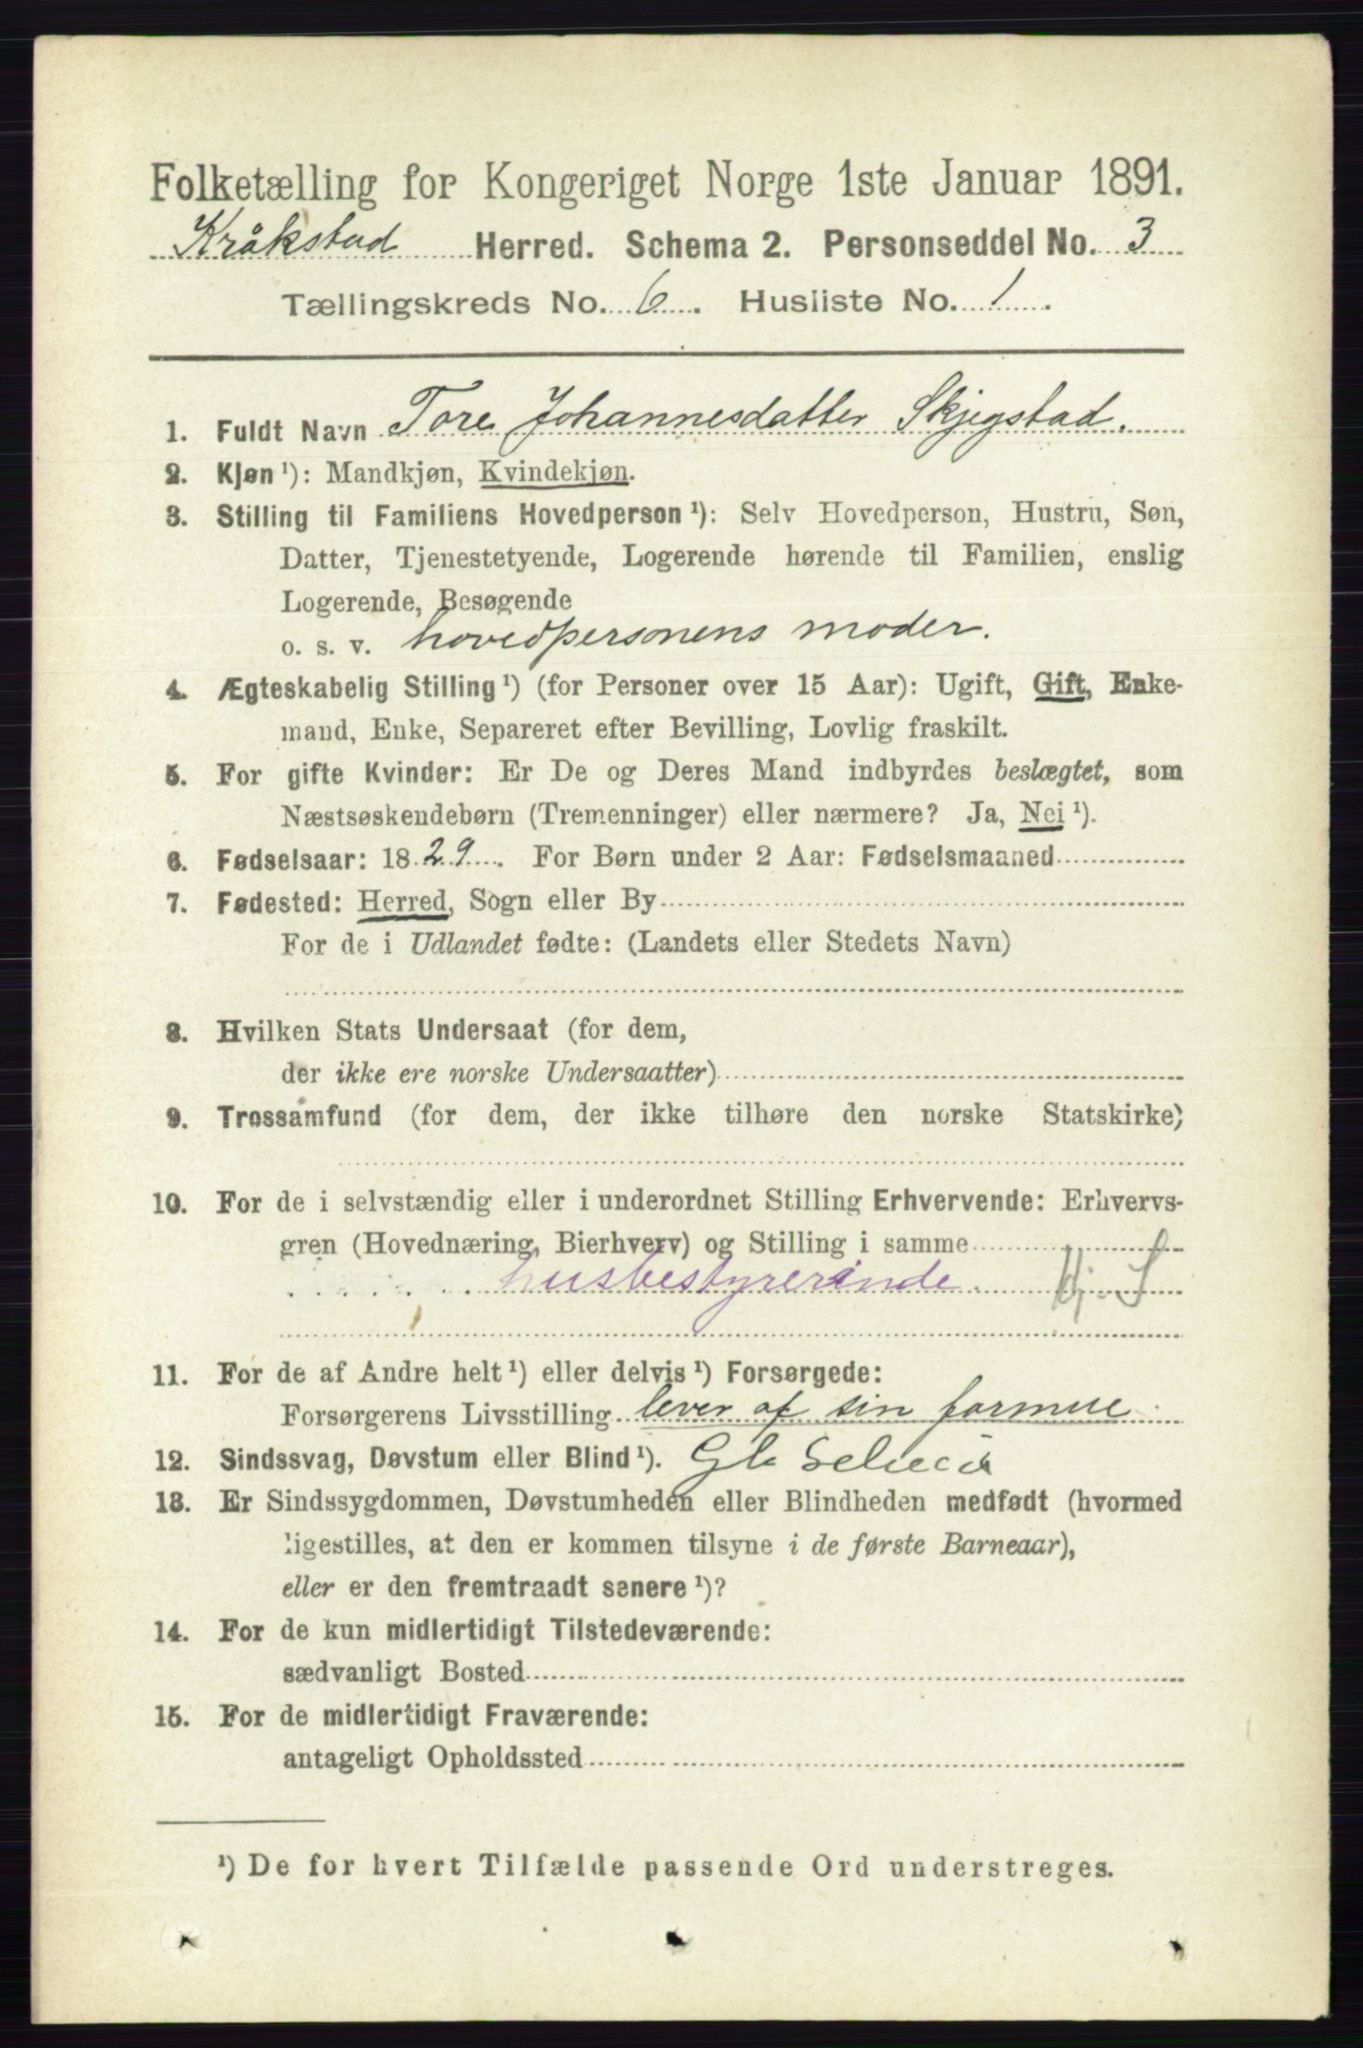 Folketælling for Kongeriget Norge 1ste Januar 1891.
Kråkstad Herred. Schema 2. Personseddel No. 3
Tællingskreds No. 6. Husliste No. 1.
1. Fuldt Navn Tore Johannesdatter Skjegstad.
2. Kjøn¹): Mandkjøn, Kvindekjøn.
3. Stilling til Familiens Hovedperson¹): Selv Hovedperson, Hustru, Søn,
Datter, Tjenestetyende, Logerende hørende til Familien, enslig
Logerende, Besøgende
o. s. v. hovedpersonens moder.
4. Ægteskabelig Stilling¹) (for Personer over 15 Aar): Ugift, Gift, Enke-
mand, Enke, Separeret efter Bevilling, Lovlig fraskilt.
5. For gifte Kvinder: Er De og Deres Mand indbyrdes beslægtet, som
Næstsøskendebørn (Tremenninger) eller nærmere? Ja, Nei¹).
6. Fødselsaar: 1829. For Børn under 2 Aar: Fødselsmaaned
7. Fødested: Herred, Sogn eller By
For de i Udlandet fødte: (Landets eller Stedets Navn)
8. Hvilken Stats Undersaat (for dem,
der ikke ere norske Undersaatter)
9. Trossamfund (for dem, der ikke tilhøre den norske Statskirke)
10. For de i selvstændig eller i underordnet Stilling Erhvervende: Erhvervs-
gren (Hovednæring, Bierhverv) og Stilling i samme
husbestyrerinde.
11. For de af Andre helt¹) eller delvis¹) Forsørgede:
Forsørgerens Livsstilling lever af sin formue
12. Sindssvag, Døvstum eller Blind¹).
13. Er Sindssygdommen, Døvstumheden eller Blindheden medfødt (hvormed
ligestilles, at den er kommen tilsyne i de første Barneaar),
eller er den fremtraadt senere¹)?
14. For de kun midlertidigt Tilstedeværende:
sædvanligt Bosted
15. For de midlertidigt Fraværende:
antageligt Opholdssted
¹) De for hvert Tilfælde passende Ord understreges.